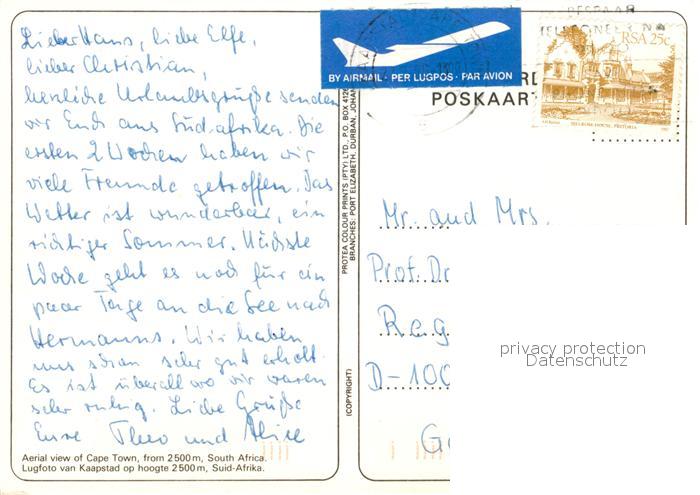 Lieber Hans, liebe Elfe,
lieber Christian,
herzliche Urlaubsgrüße senden
wir Euch aus Südafrika. Die
ersten 2 Wochen haben wir
viele Freunde getroffen. Das
Wetter ist wunderbar, ein
richtiger Sommer. Nächste
Woche geht es noch für ein
paar Tage an die See nach
Hermanus. Wir haben
uns schon sehr gut erholt.
Es ist überall wo wir waren
sehr ruhig. Liebe Grüße
Eure Theo und Alice
Aerial view of Cape Town, from 2500m, South Africa.
Lugfoto van Kaapstad op hoogte 2500m, Suid-Afrika.
PROTEA COLOUR PRINTS (PTY) LTD., P.O. BOX
BRANCHES: PORT ELIZABETH, DURBAN,
(COPYRIGHT)
BY AIRMAIL · PER LUGPOS · PAR AVION
POSKAART
RSA 25c
MELROSE HOUSE, PRETORIA
Mr. and Mrs.
Prof. Dr
Reg
D-100
privacy protection
Datenschutz